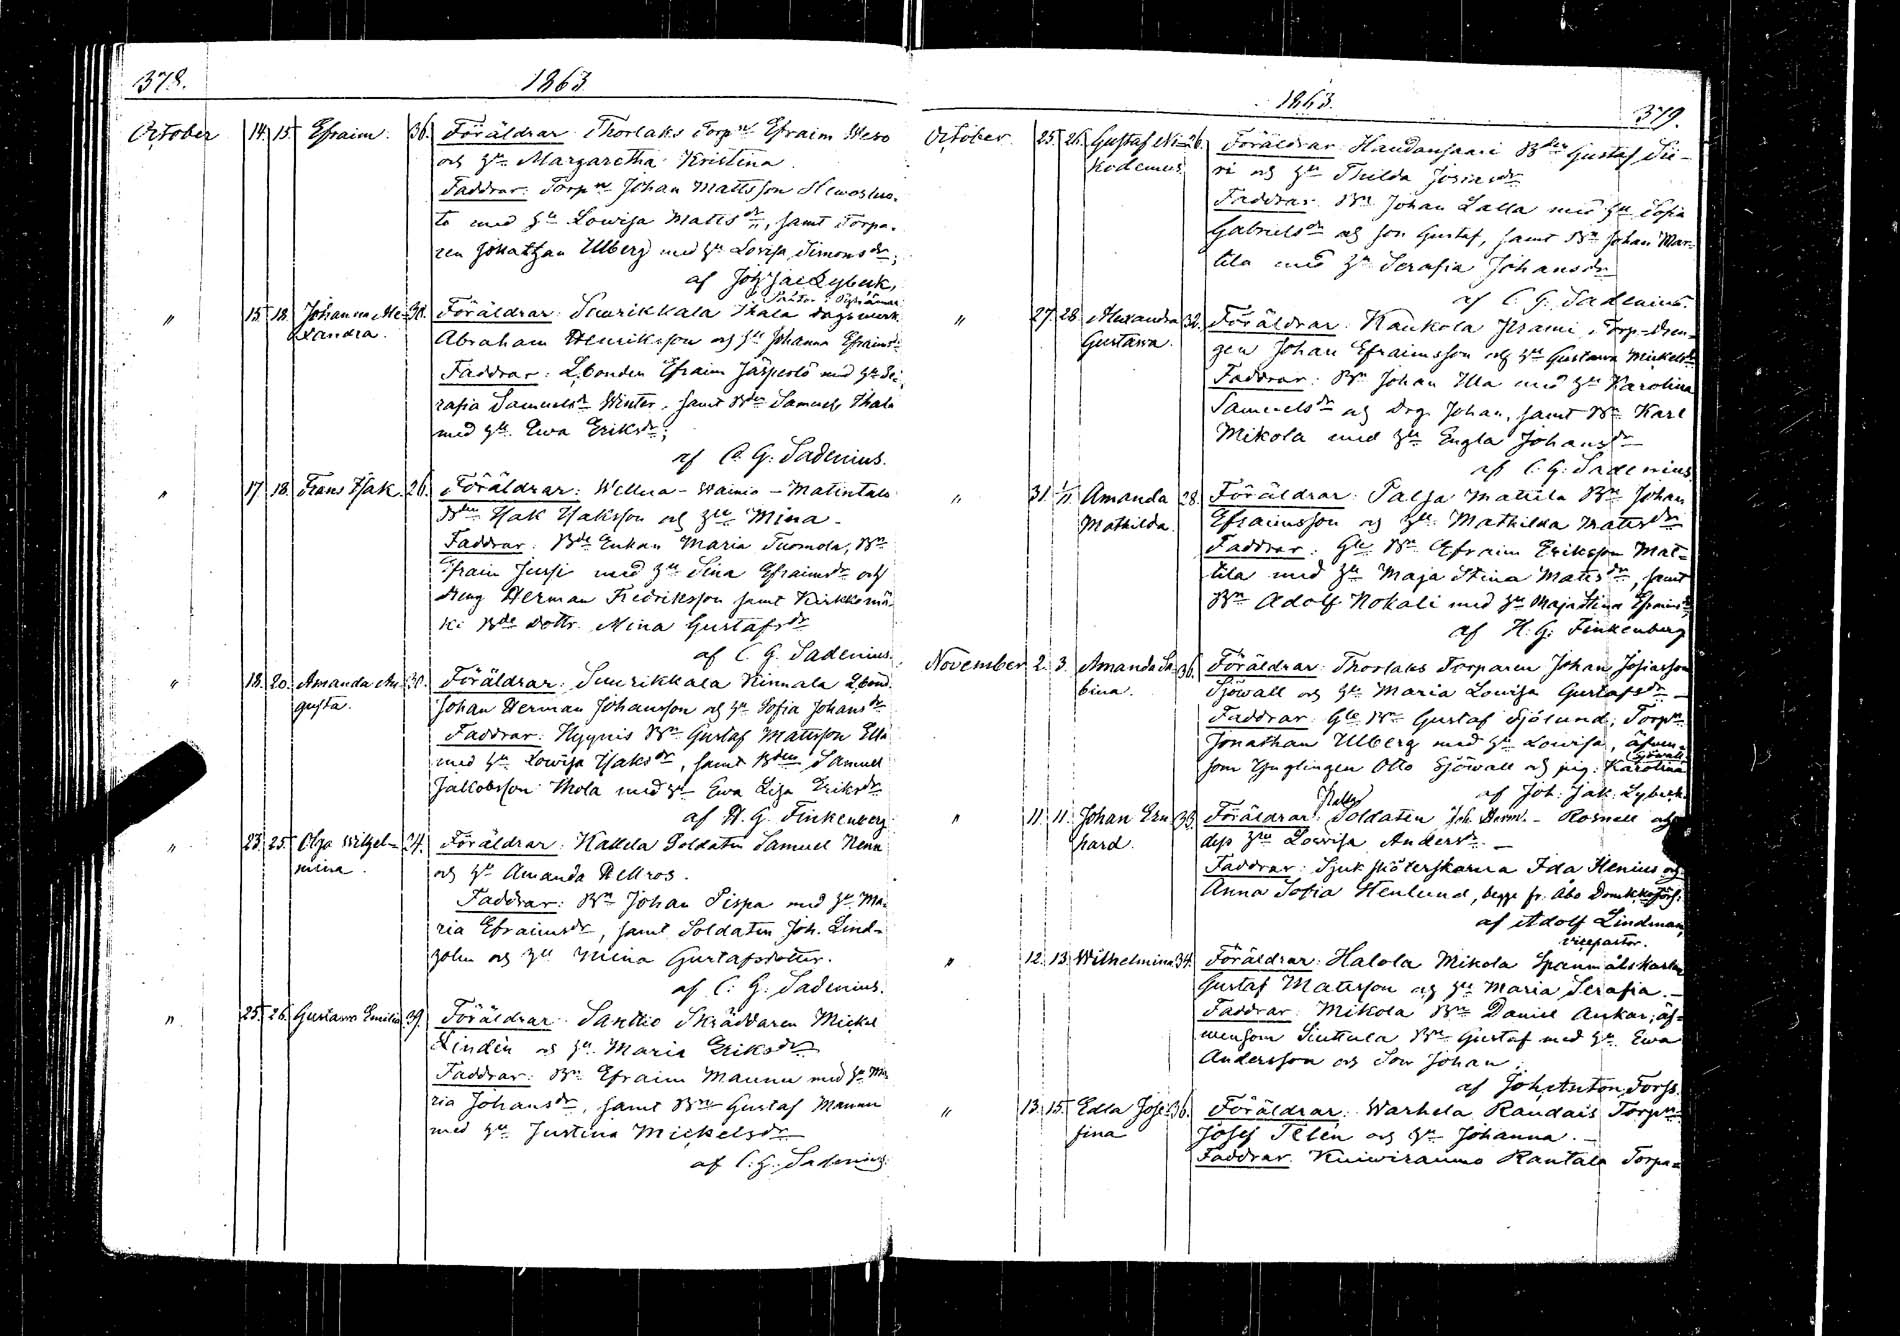 378. 1863.
October 14. 15. Efraim. 36. Föräldrar Thorlaks Torpn Efraim Wero
och hu Margaretha Kristina.
Faddrar: Torpn Johan Mattsson
med hu Lowisa Mattsdr, samt Torpa-
ren Jonathan Ulberg med hu Lovisa Simonsdr;
af Joh Jac Lybeck,
" 15. 18. Johanna Ale- 30. Föräldrar: Suurikkala Ihala
xandra. Abraham Henriksson och hu Johanna Efraimsdr
Faddrar: Lbonden Efraim Jäsperlö med hu Se-
rafia Samuelsdr Winter, samt Bdn Samuel Ihala
med hu Ewa Eriksdr;
af C. G. Sadenius.
" 17. 18. Frans Isak. 26. Föräldrar: Wellua-Wainio-Matintalo
Bdn Isak Isaksson och hu Mina.
Faddrar: Bde Enkan Maria Tuomola, Bn
Efraim Jussi med hu Stina Efraimsdr och
dreng Herman Fredriksson samt Kirkkomä-
ki Bde dottr. Mina Gustafsdr
af C. G. Sadenius.
" 18. 20. Amanda Au- 30. Föräldrar: Suurikkala Kinnala Lbond.
gusta. Johan Herman Johansson och hu Sofia Johansdr
Faddrar: Hyynis Bn Gustaf Mattsson Ella
med hu Lowisa Isaksdr, samt Bden Samuel
Jakobsson Thola med hu Ewa Lisa Eriksdr
af H. G. Finkenberg
" 23. 25. Olga Wilhel- 24. Föräldrar: Kallela Soldaten Samuel
mina. och hu Amanda Hellros.
Faddrar: Bn Johan Sispa med hu Ma-
ria Efraimsdr, samt Soldaten Joh. Lind-
holm och hu Mina Gustafsdotter.
af C. G. Sadenius.
" 25. 26. Gustawa Emilia. 39. Föräldrar: Santtio Skräddaren Mickel
Lindén och hu Maria Eriksdr
Faddrar: Bn Efraim Mannu med hu Ma-
ria Johansdr, samt Bn Gustaf Mannu
med hu Justina Mickelsdr
af C. G. Sadenius
1863. 379.
October 25. 26. Gustaf Ni- 26. Föräldrar: Haudansaari Bden Gustaf Sii-
kodemus ri och hu Thilda Josiasdr
Faddrar: Bn Johan Lalla med hu Sofia
Gabrielsdr och son Gustaf, samt Bn Johan Mar-
tila med hu Serafia Johansdr
af C. G. Sadenius.
" 27. 28. Alexandra 32. Föräldrar: Kaukola Torp-dren-
Gustawa. gen Johan Efraimsson och hu Gustawa Mickelsdr
Faddrar: Bn Johan Illa med hu Karolina
Samuelsdr och Drg. Johan, samt Bn Karl
Mikola med hu Engla Johansdr
af C. G. Sadenius
" 31. 1/11 Amanda 28. Föräldrar: Palsa Mattila Bn Johan
Mathilda. Efraimsson och hu Mathilda Mattsdr
Faddrar: Gle Bn Efraim Eriksson Mat-
tila med hu Maja Stina Mattsdr, samt
Bn Adolf Nokali med hu Maja Stina Efraimsdr,
af H. G. Finkenberg
November 2. 3. Amanda Sa- 36. Föräldrar: Thorlaks Torparen Johan Josiasson
bina. Sjöwall och hu Maria Lowisa Gustafsdr —
Faddrar: Gle Bn Gustaf Sjölund, Torpn
Jonathan Ulberg med hu Lowisa, äfven-
Sjöwall
som Ynglingen Otto Sjöwall och pig. Karolina
af Joh. Jak. Lybeck.
" 11. 11. Johan Ern- 33. Föräldrar: Soldaten Joh. Herm. Rosnell och
hard. des hu Lowisa Andersdr. —
Faddrar: Sjukskötterskarna Ida Henius och
Anna Sofia Stenlund, begge fr. Åbo Domkkoförs:
af Adolf Lindman,
vicepastor.
" 12. 13. Wilhelmina 34. Föräldrar: Halola Mikola Spanmålskarlen
Gustaf Mattsson och hu Maria Serafia. —
Faddrar: Mikola Bn Daniel Ankar, äf-
wensom Sinttula Bn Gustaf med hu Ewa
Andersson och Son Johan.
af Joh. Anton Forss.
" 13. 15. Edla Jose- 36. Föräldrar: Warhela Raudais Torpn
fina Josef Telén och hu Johanna. —
Faddrar: Kuiwiraumo Rantala Torpa-